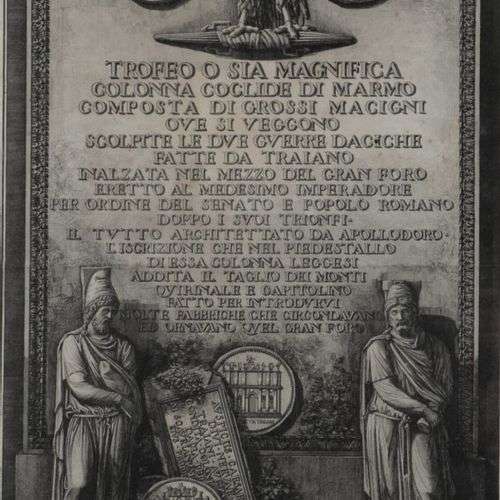 TROFEO O SIA MAGNIFICA
COLONNA COCLIDE DI MARMO
COMPOSTA DI GROSSI MACIGNI
OVE SI VEGGONO
SCOLPITE LE DUE GUERRE DACICHE
FATTE DA TRAIANO
INALZATA NEL MEZZO DEL GRAN FORO
ERETTO AL MEDESIMO IMPERADORE
PER ORDINE DEL SENATO E POPOLO ROMANO
DOPPO I SUOI TRIONFI·
IL TUTTO ARCHITETTATO DA APOLLODORO·
L'ISCRIZIONE CHE NEL PIEDESTALLO
DI ESSA COLONNA LEGGESI
ADDITA IL TAGLIO DEI MONTI
QUIRINALE E CAPITOLINO
FATTO PER INTRODURVI
MOLTE FABBRICHE CHE CIRCONDAVANO
ED ORNAVANO QUEL GRAN FORO